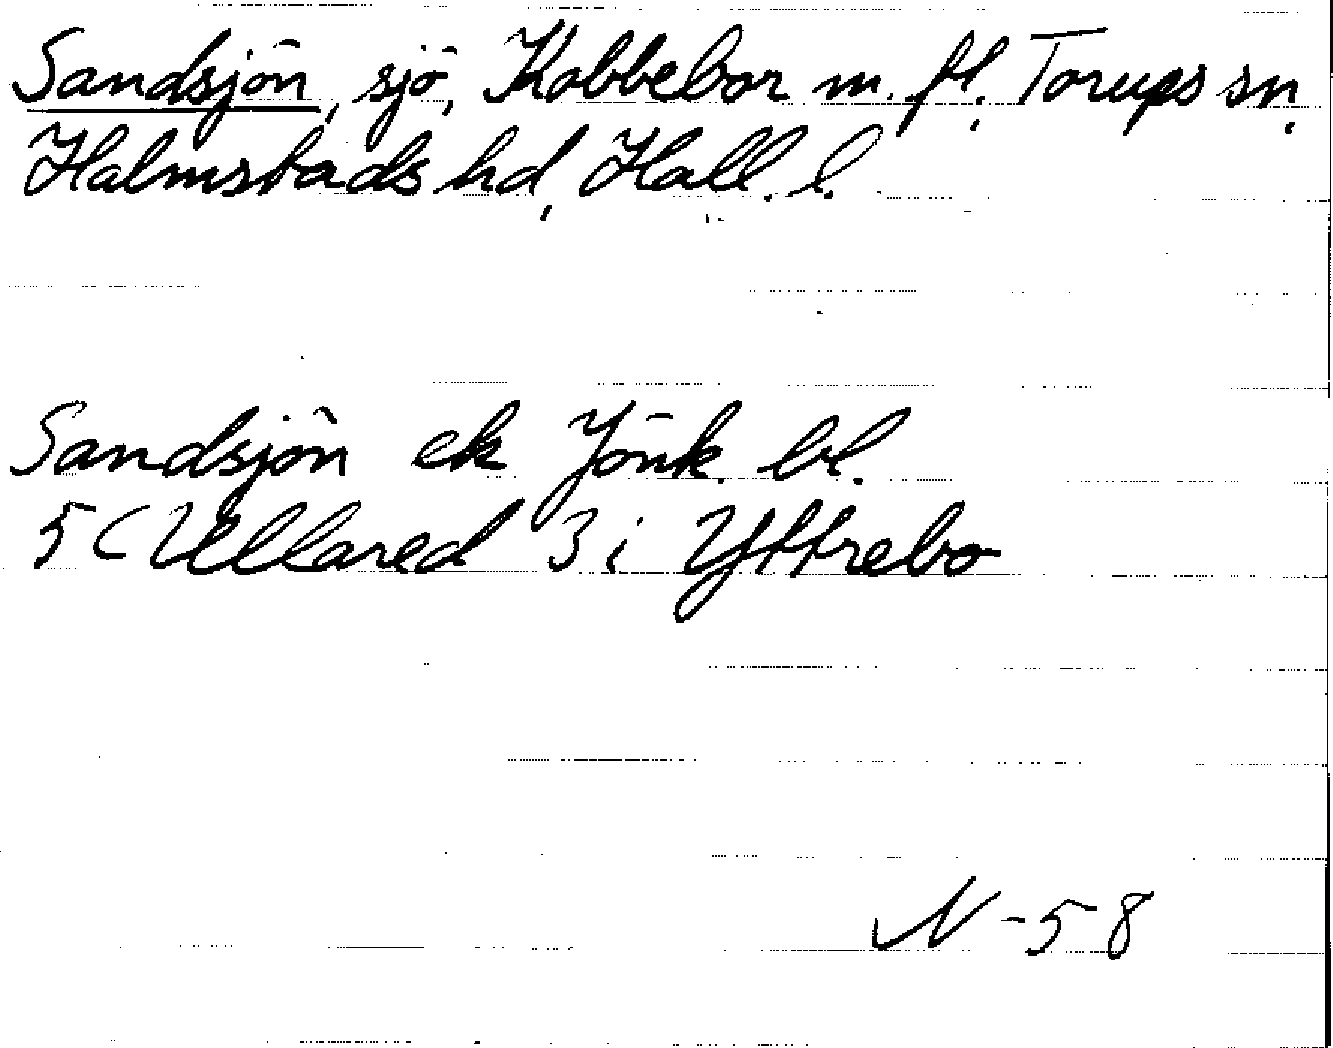 Sandsjön, sjö, Kobbebor m. fl. Torups sn,
Halmstads hd, Hall. l.
Sandsjön ek Jönk. bl.
5C Ullared 3i Yttrebo
N-58